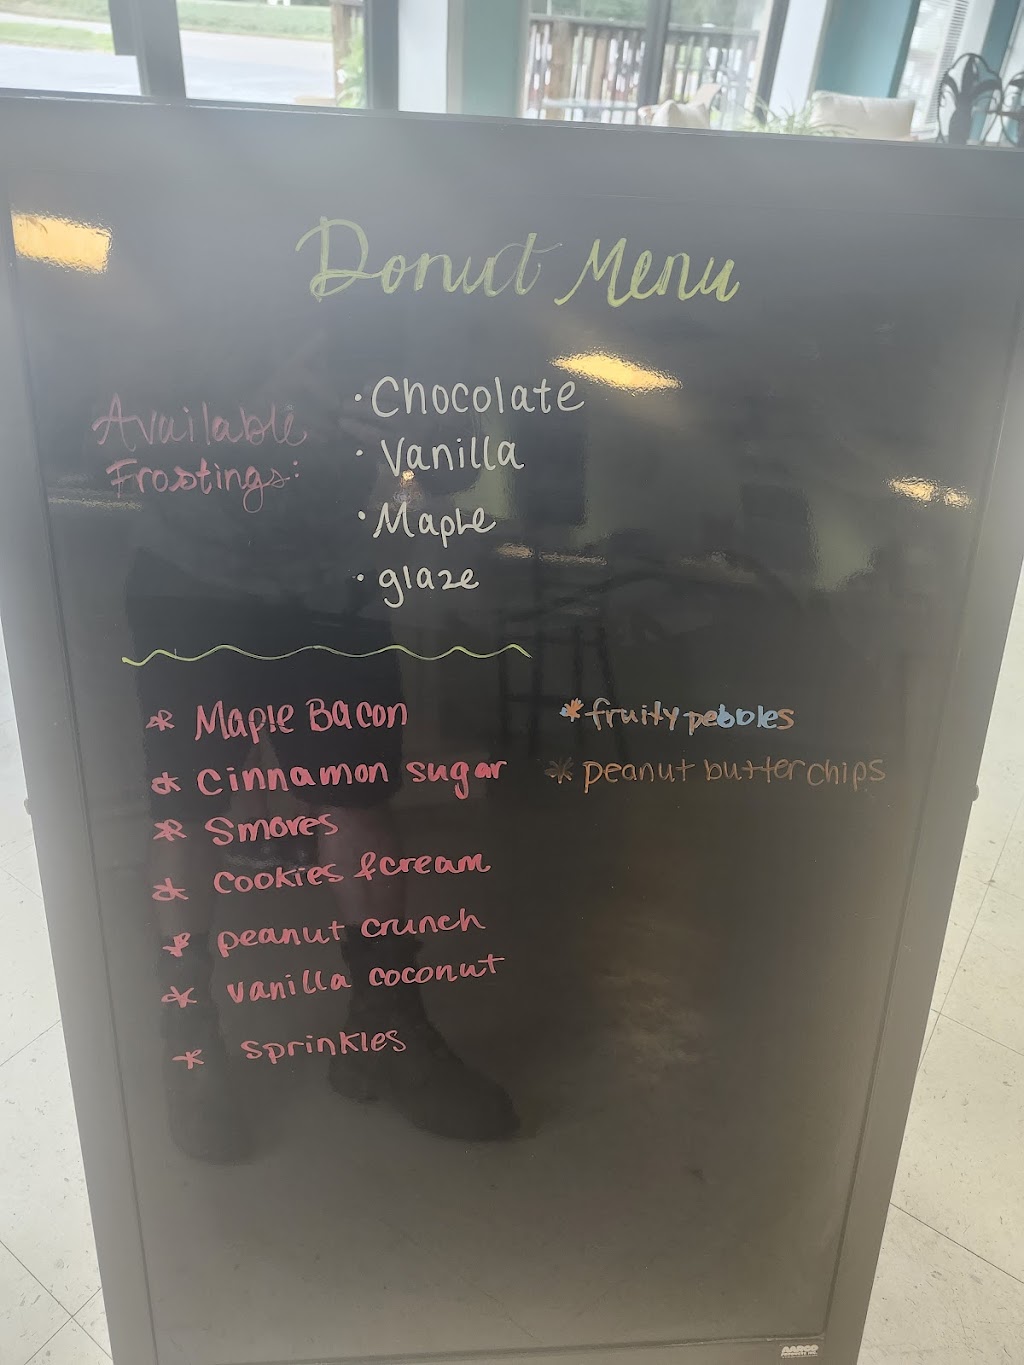 Donut Menu
Available
Frostings:
· Chocolate
· Vanilla
· Maple
· glaze
* Maple Bacon
* Cinnamon sugar
* Smores
* Cookies & cream
* peanut crunch
* vanilla coconut
* sprinkles
* fruity pebbles
* peanut butter chips
AARCO